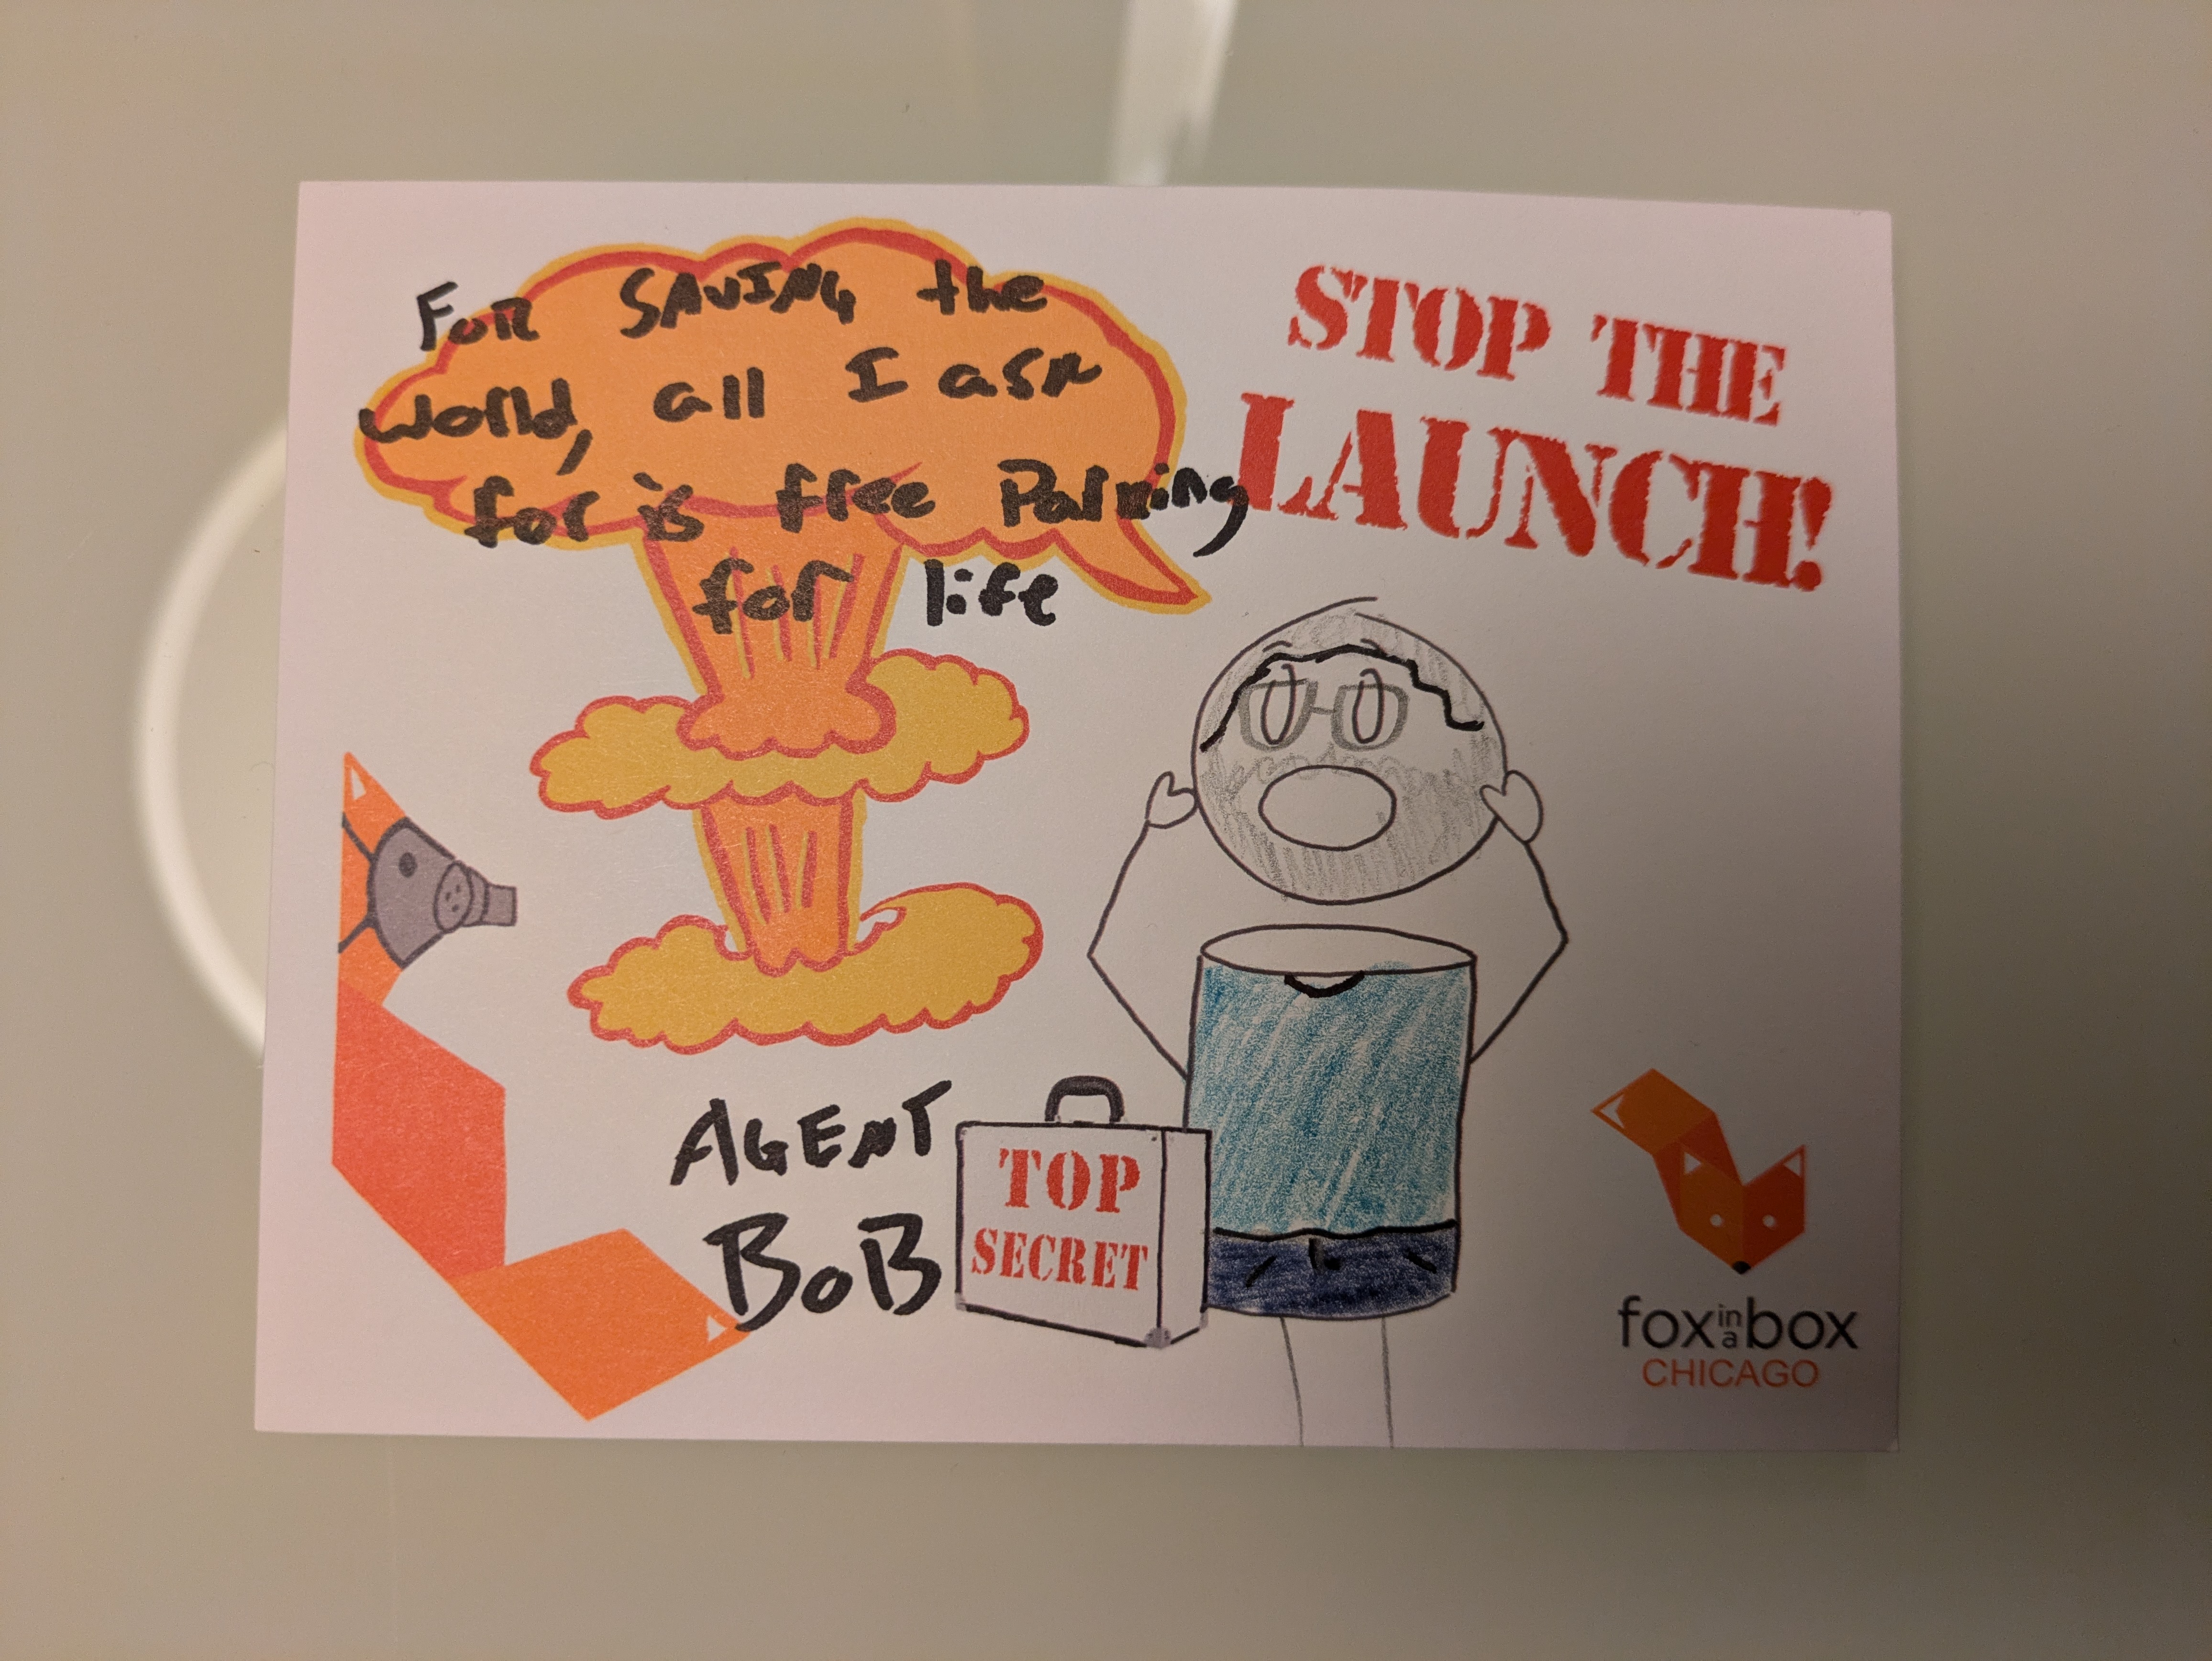 FOR SAVING the
world, all I ask
for is free Parking
for life
STOP THE
LAUNCH!
AGENT
BOB
TOP
SECRET
fox in a box
CHICAGO